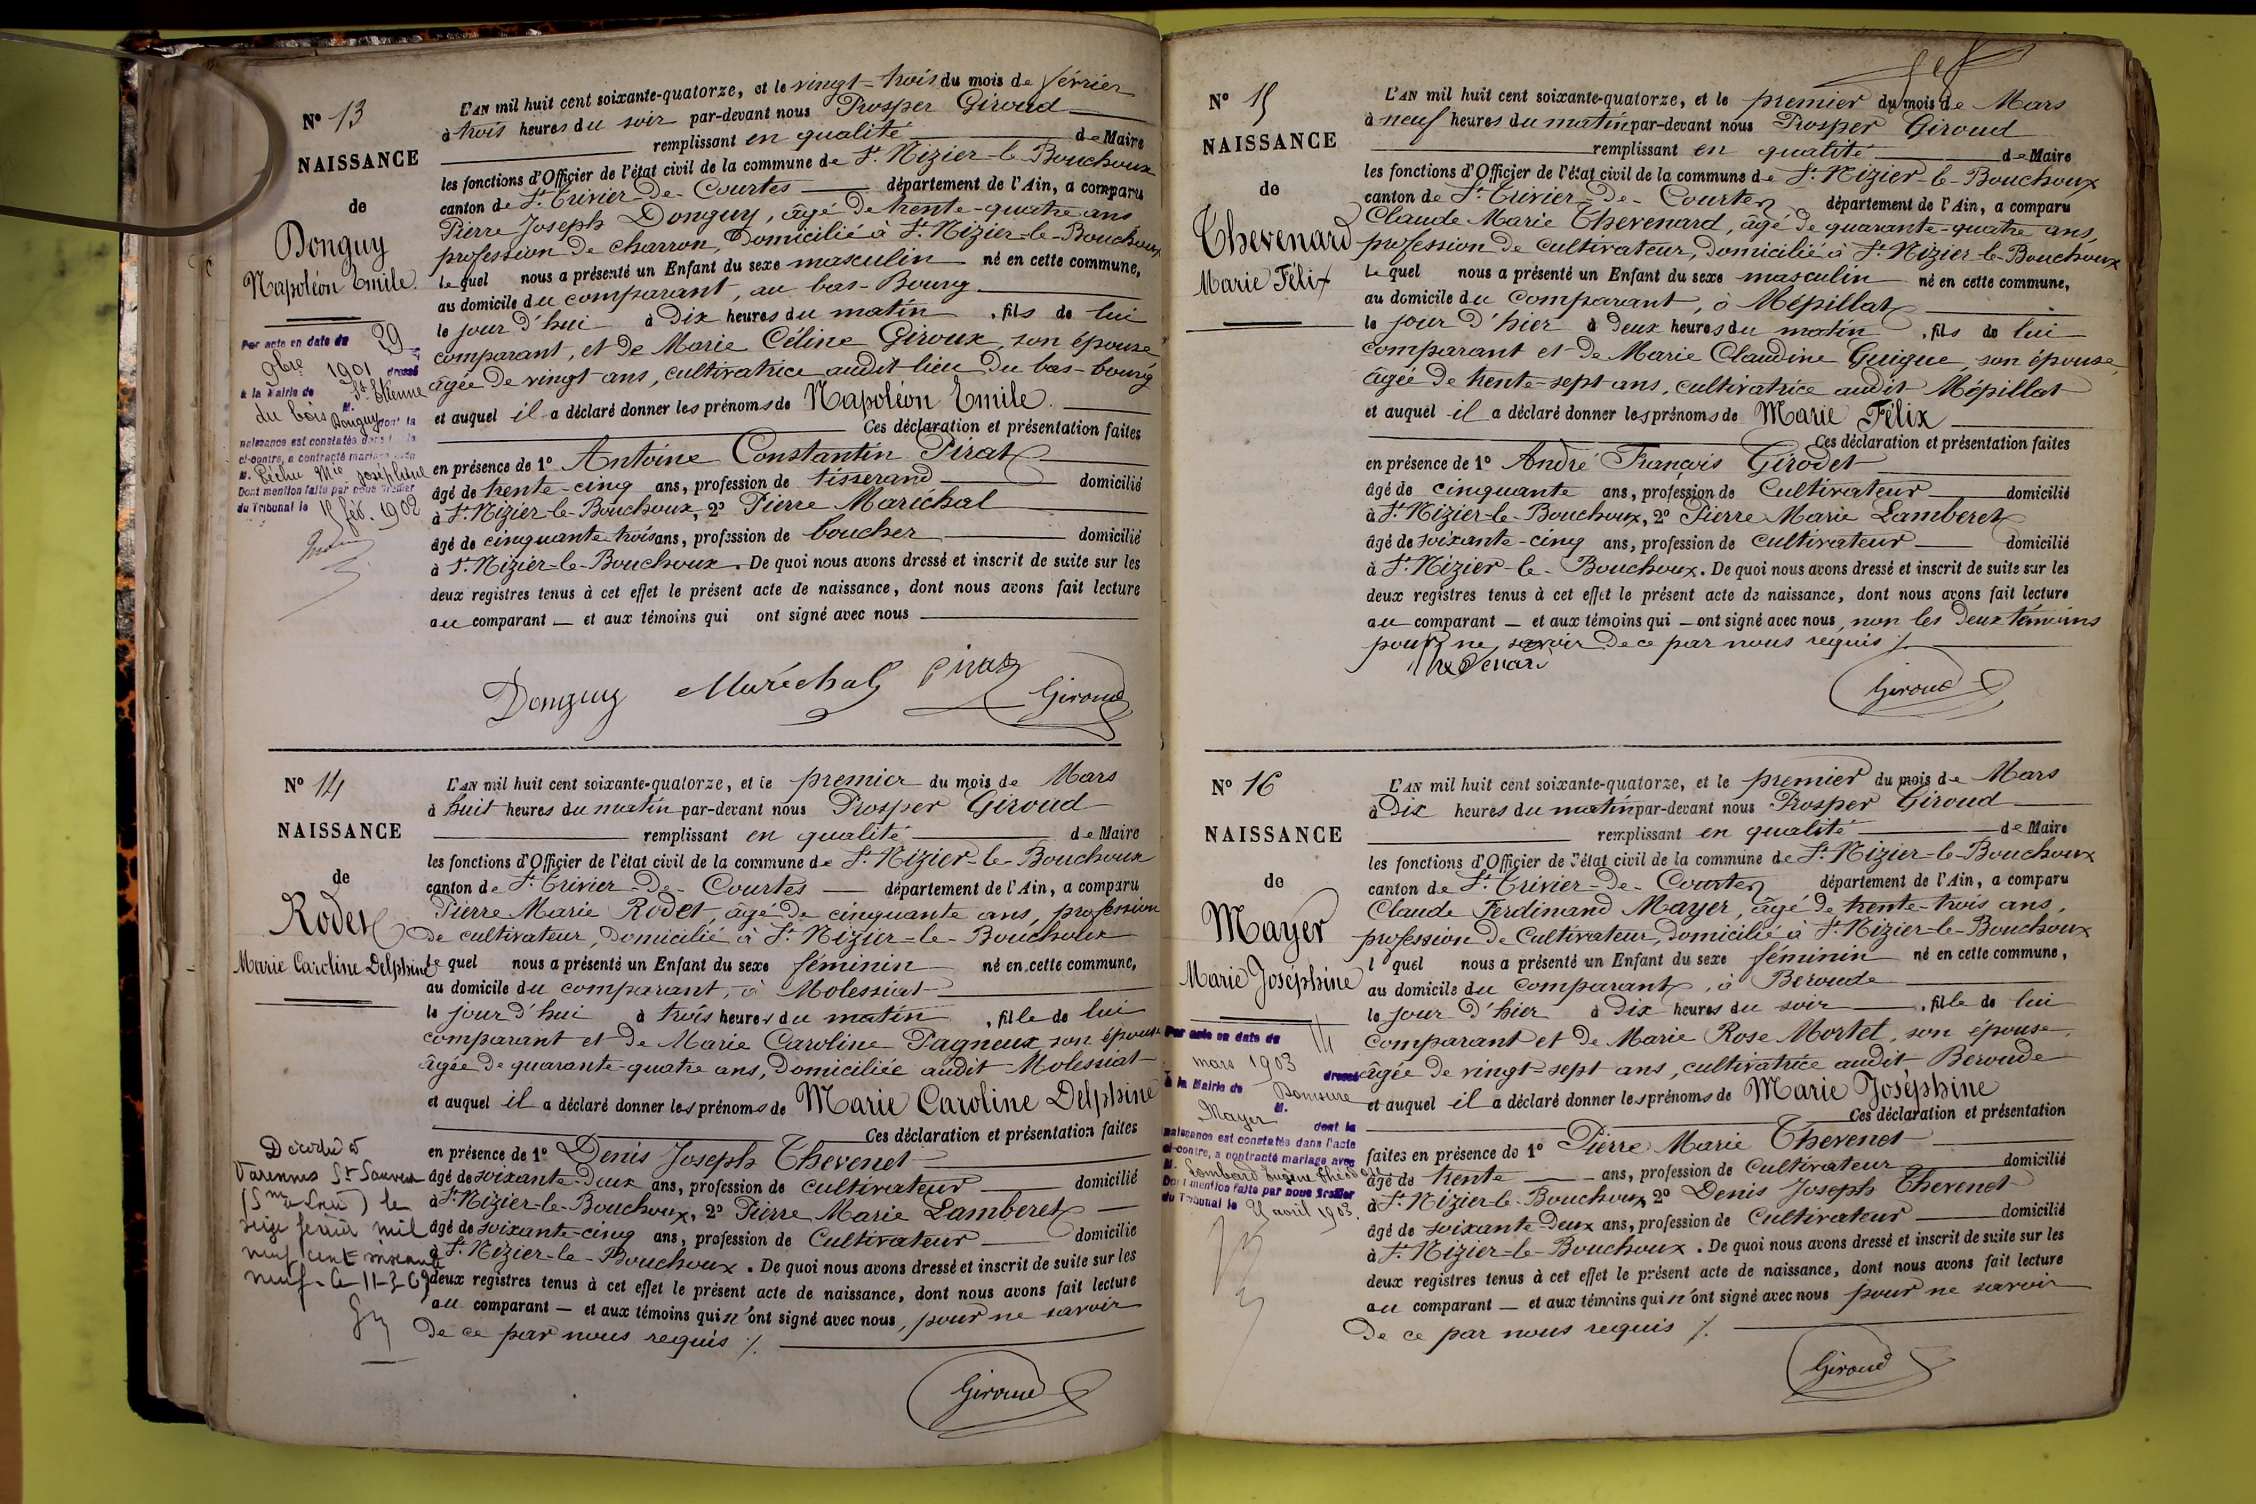 N° 13
NAISSANCE
de
Donguy
Napoléon Emile.
Par acte en date du 29
9bre 1901 dressé
à la Mairie de St Etienne
du bois M.
Donguy dont la
naissance est constatée dans l'acte
ci-contre, a contracté mariage avec
M. Péchu Mie Joséphine
Dont mention faite par nous Greffier
du Tribunal le 15 fév. 1902
L'AN mil huit cent soixante-quatorze, et le vingt-trois du mois de février
à trois heures du soir par-devant nous Prosper Giroud
remplissant en qualité de Maire
les fonctions d'Officier de l'état civil de la commune de St Nizier-le-Bouchoux
canton de St Trivier-de-Courtes département de l'Ain, a comparu
Pierre Joseph Donguy, âgé de trente-quatre ans
profession de charron, domicilié à St Nizier-le-Bouchoux
lequel nous a présenté un Enfant du sexe masculin né en cette commune,
au domicile du comparant, au bas-Bourg
le jour d'hui à dix heures du matin, fils de lui
comparant, et de Marie Céline Giroux, son épouse
âgée de vingt ans, cultivatrice audit lieu du bas-bourg
et auquel il a déclaré donner les prénoms de Napoléon Emile.
Ces déclaration et présentation faites
en présence de 1° Antoine Constantin Pirat
âgé de trente-cinq ans, profession de tisserand domicilié
à St Nizier-le-Bouchoux, 2° Pierre Maréchal
âgé de cinquante trois ans, profession de boucher domicilié
à St Nizier-le-Bouchoux. De quoi nous avons dressé et inscrit de suite sur les
deux registres tenus à cet effet le présent acte de naissance, dont nous avons fait lecture
au comparant — et aux témoins qui ont signé avec nous
Donguy Maréchal Pirat Giroud
N° 14
NAISSANCE
de
Rodet
Marie Caroline Delphine
Décédée à
Varennes St Sauveur
(Sne & Loire) le
seize février mil
neuf cent soixante
neuf. Le 11-3-69
L'AN mil huit cent soixante-quatorze, et le premier du mois de Mars
à huit heures du matin par-devant nous Prosper Giroud
remplissant en qualité de Maire
les fonctions d'Officier de l'état civil de la commune de St Nizier-le-Bouchoux
canton de St Trivier-de-Courtes département de l'Ain, a comparu
Pierre Marie Rodet, âgé de cinquante ans, profession
de cultivateur, domicilié à St Nizier-le-Bouchoux
lequel nous a présenté un Enfant du sexe féminin né en cette commune,
au domicile du comparant, à Molessiat
le jour d'hui à trois heures du matin, fille de lui
comparant et de Marie Caroline Pagneux son épouse
âgée de quarante-quatre ans, domiciliée audit Molessiat
et auquel il a déclaré donner les prénoms de Marie Caroline Delphine
Ces déclaration et présentation faites
en présence de 1° Denis Joseph Thevenet
âgé de soixante-deux ans, profession de cultivateur domicilié
à St Nizier-le-Bouchoux, 2° Pierre Marie Lamberet
âgé de soixante-cinq ans, profession de Cultivateur domicilié
à St Nizier-le-Bouchoux. De quoi nous avons dressé et inscrit de suite sur les
deux registres tenus à cet effet le présent acte de naissance, dont nous avons fait lecture
au comparant — et aux témoins qui n'ont signé avec nous, pour ne savoir
de ce par nous requis ./.
Giroud
N° 15
NAISSANCE
de
Thevenard
Marie Félix
L'AN mil huit cent soixante-quatorze, et le premier du mois de Mars
à neuf heures du matin par-devant nous Prosper Giroud
remplissant en qualité de Maire
les fonctions d'Officier de l'état civil de la commune de St Nizier-le-Bouchoux
canton de St Trivier-de-Courtes département de l'Ain, a comparu
Claude Marie Thevenard, âgé de quarante-quatre ans,
profession de cultivateur, domicilié à St Nizier-le-Bouchoux
lequel nous a présenté un Enfant du sexe masculin né en cette commune,
au domicile du comparant, à Mépillat
le jour d'hier à deux heures du matin, fils de lui
comparant et de Marie Claudine Guigue, son épouse,
âgée de trente-sept ans, cultivatrice audit Mépillat
et auquel il a déclaré donner les prénoms de Marie Félix
Ces déclaration et présentation faites
en présence de 1° André François Girodet
âgé de cinquante ans, profession de Cultivateur domicilié
à St Nizier-le-Bouchoux, 2° Pierre Marie Lamberet
âgé de soixante-cinq ans, profession de cultivateur domicilié
à St Nizier-le-Bouchoux. De quoi nous avons dressé et inscrit de suite sur les
deux registres tenus à cet effet le présent acte de naissance, dont nous avons fait lecture
au comparant — et aux témoins qui — ont signé avec nous, non les deux témoins
pour ne savoir de ce par nous requis ./.
Thevenard
Giroud
N° 16
NAISSANCE
de
Mayer
Marie Joséphine
Par acte en date du 14
mars 1903 dressé
à la Mairie de Domsure
M.
Mayer dont la
naissance est constatée dans l'acte
ci-contre, a contracté mariage avec
M. Lombard Eugène Théodore
Dont mention faite par nous Greffier
du Tribunal le 25 avril 1903.
L'AN mil huit cent soixante-quatorze, et le premier du mois de Mars
à Dix heures du matin par-devant nous Prosper Giroud
remplissant en qualité de Maire
les fonctions d'Officier de l'état civil de la commune de St Nizier-le-Bouchoux
canton de St Trivier-de-Courtes département de l'Ain, a comparu
Claude Ferdinand Mayer, âgé de trente-trois ans,
profession de Cultivateur, domicilié à St Nizier-le-Bouchoux
l quel nous a présenté un Enfant du sexe féminin né en cette commune,
au domicile du comparant, à Beroude
le jour d'hier à dix heures du soir, fille de lui
comparant et de Marie Rose Mortet, son épouse,
âgée de vingt-sept ans, cultivatrice audit Beroude
et auquel il a déclaré donner les prénoms de Marie Joséphine
Ces déclaration et présentation
faites en présence de 1° Pierre Marie Thevenet
âgé de trente ans, profession de Cultivateur domicilié
à St Nizier-le-Bouchoux 2° Denis Joseph Thevenet
âgé de soixante-deux ans, profession de Cultivateur domicilié
à St Nizier-le-Bouchoux. De quoi nous avons dressé et inscrit de suite sur les
deux registres tenus à cet effet le présent acte de naissance, dont nous avons fait lecture
au comparant — et aux témoins qui n'ont signé avec nous pour ne savoir
de ce par nous requis ./.
Giroud